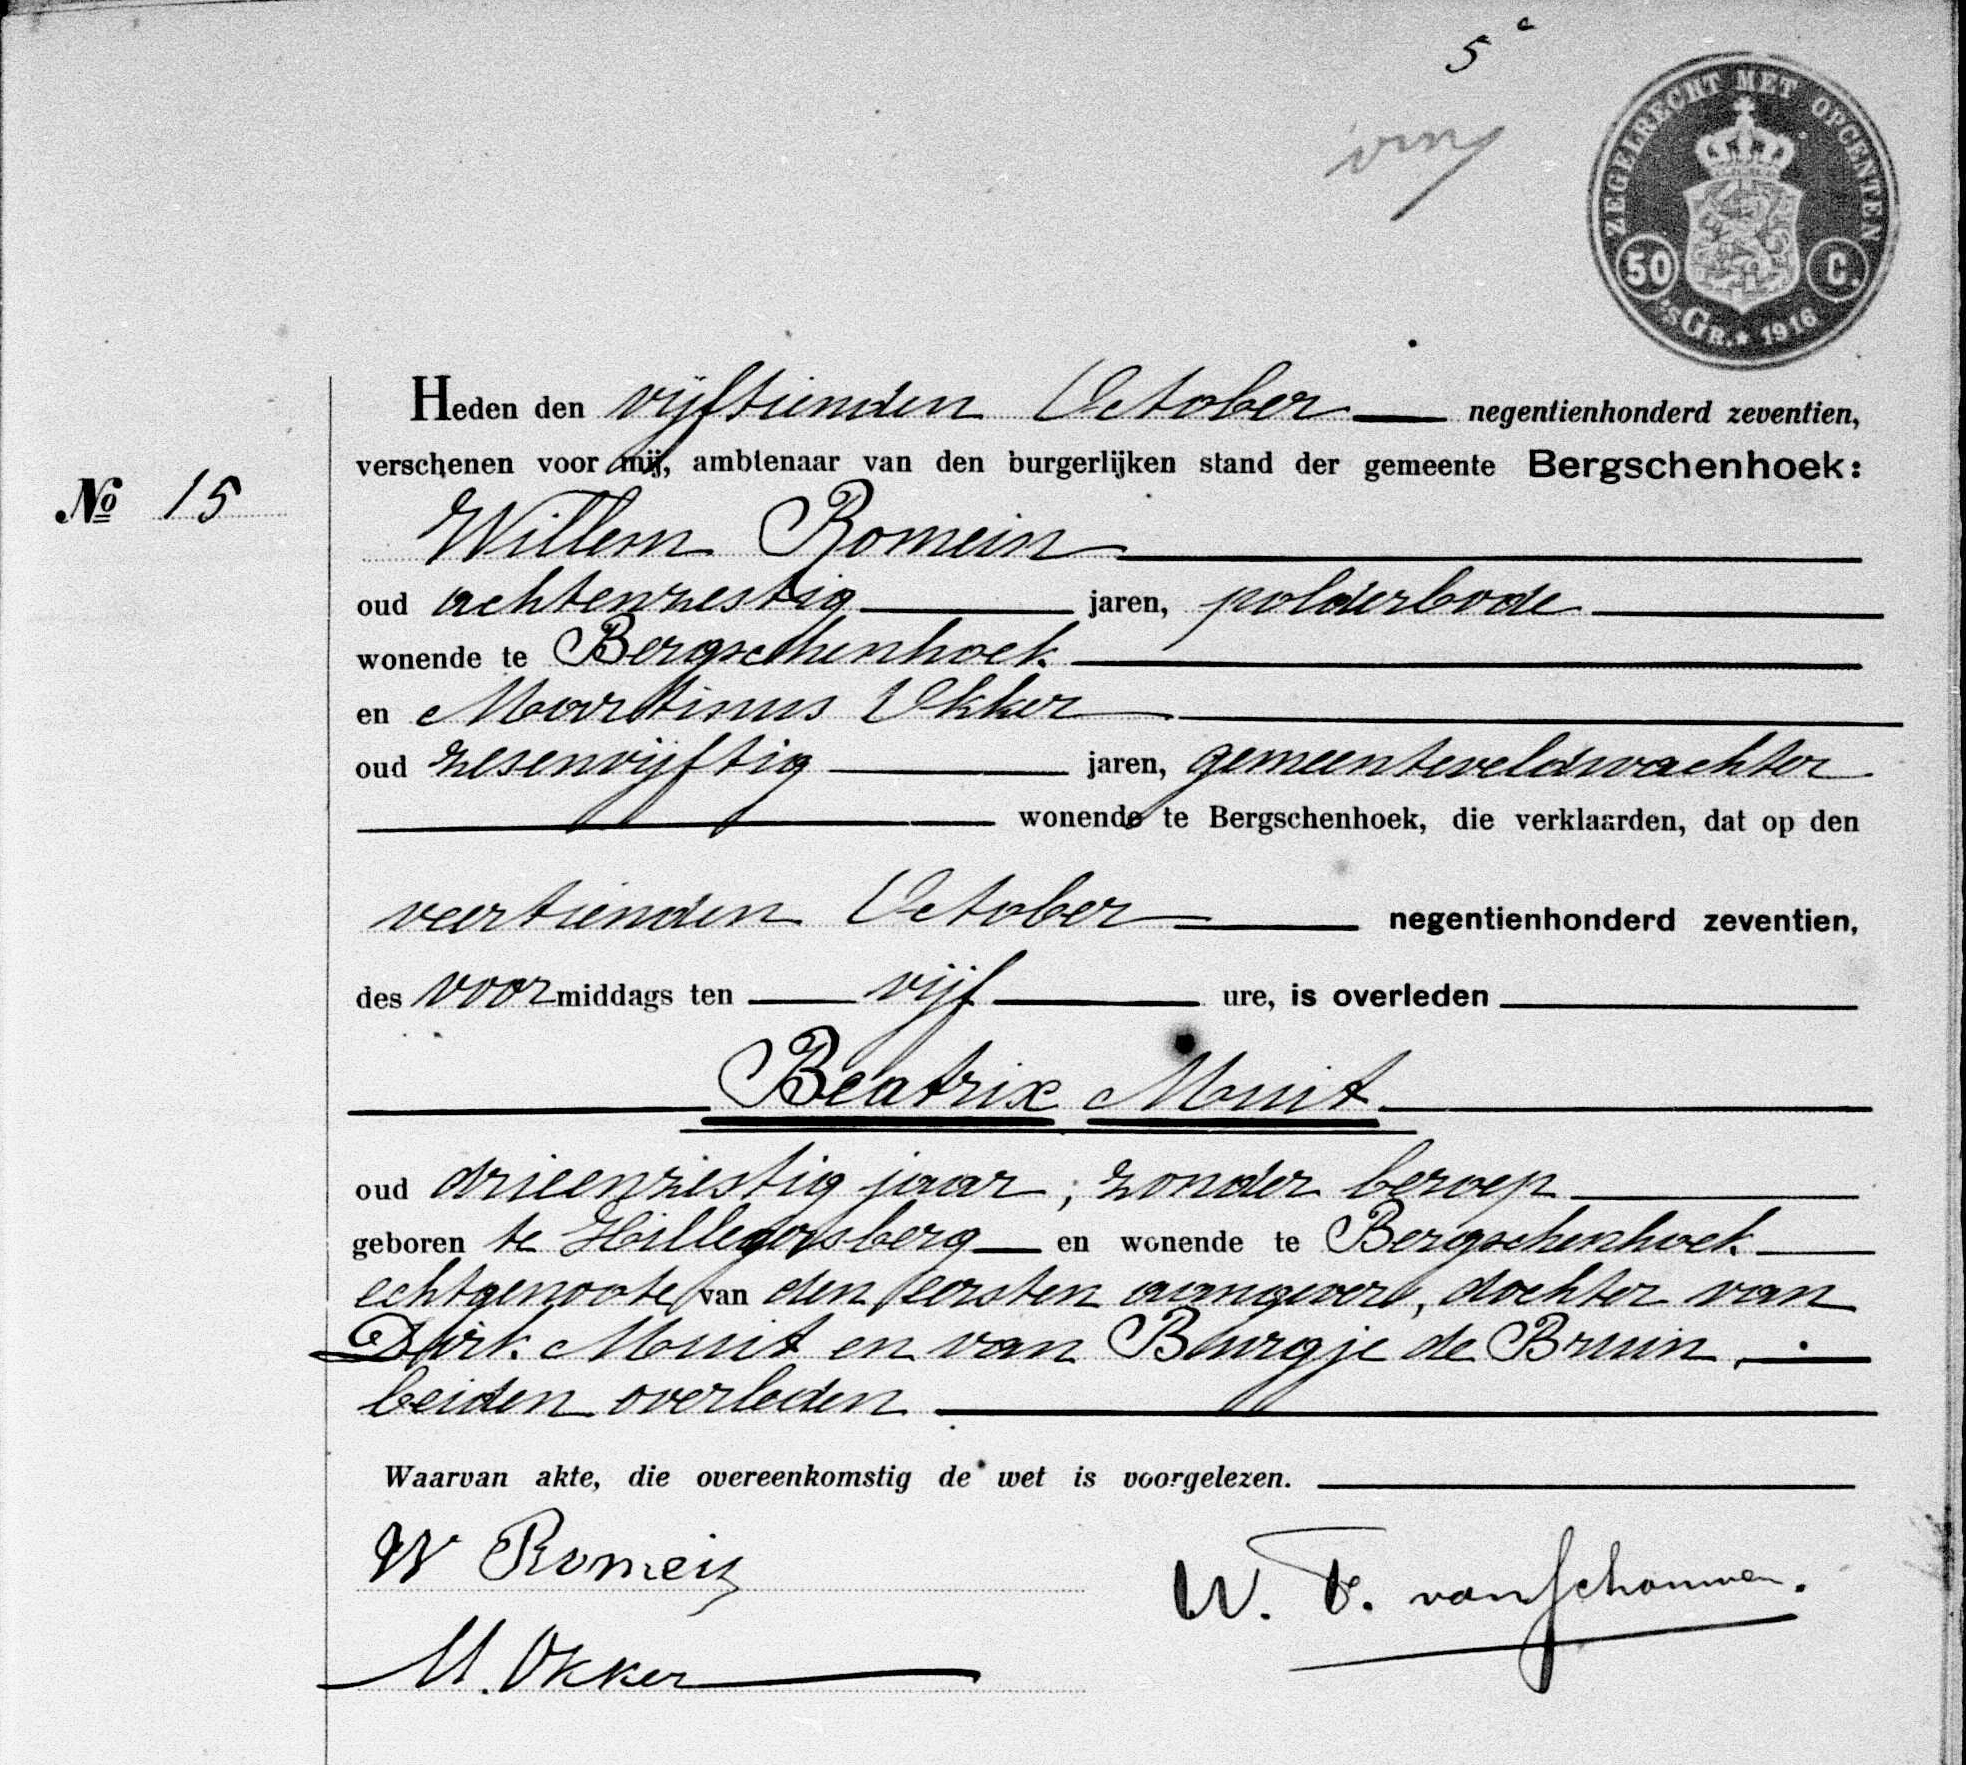 5 c
ZEGELRECHT MET OPCENTEN
50 C.
'sGR. * 1916
Heden den vijftienden October negentienhonderd zeventien,
verschenen voor mij, ambtenaar van den burgerlijken stand der gemeente Bergschenhoek:
No 15
Willem Romein
oud achtenzestig jaren, polderbode
wonende te Bergschenhoek
en Martinus Okker
oud zesenvijftig jaren, gemeenteveldwachter
wonende te Bergschenhoek, die verklaarden, dat op den
veertienden October negentienhonderd zeventien,
des voormiddags ten vijf ure, is overleden
Beatrix Muit
oud drieenzestig jaar, zonder beroep
geboren te Hillegersberg en wonende te Bergschenhoek
echtgenoote van den eersten aangever, dochter van
Dirk Muit en van Burgje de Bruin,
beiden overleden
Waarvan akte, die overeenkomstig de wet is voorgelezen.
W Romein
W. F. van Schouwen.
M. Okker